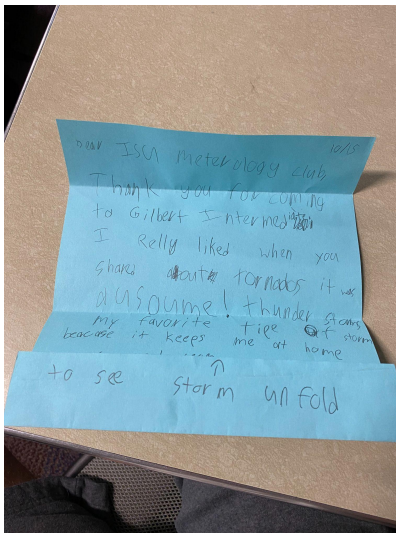 Dear ISU meterology club 10/15
Thank you for coming
to Gilbert Intermediate
I Relly liked when you
shared about tornados it was
ausoume! thunder storms
my favorite tipe of storm
beacause it keeps me at home
to see storm unfold